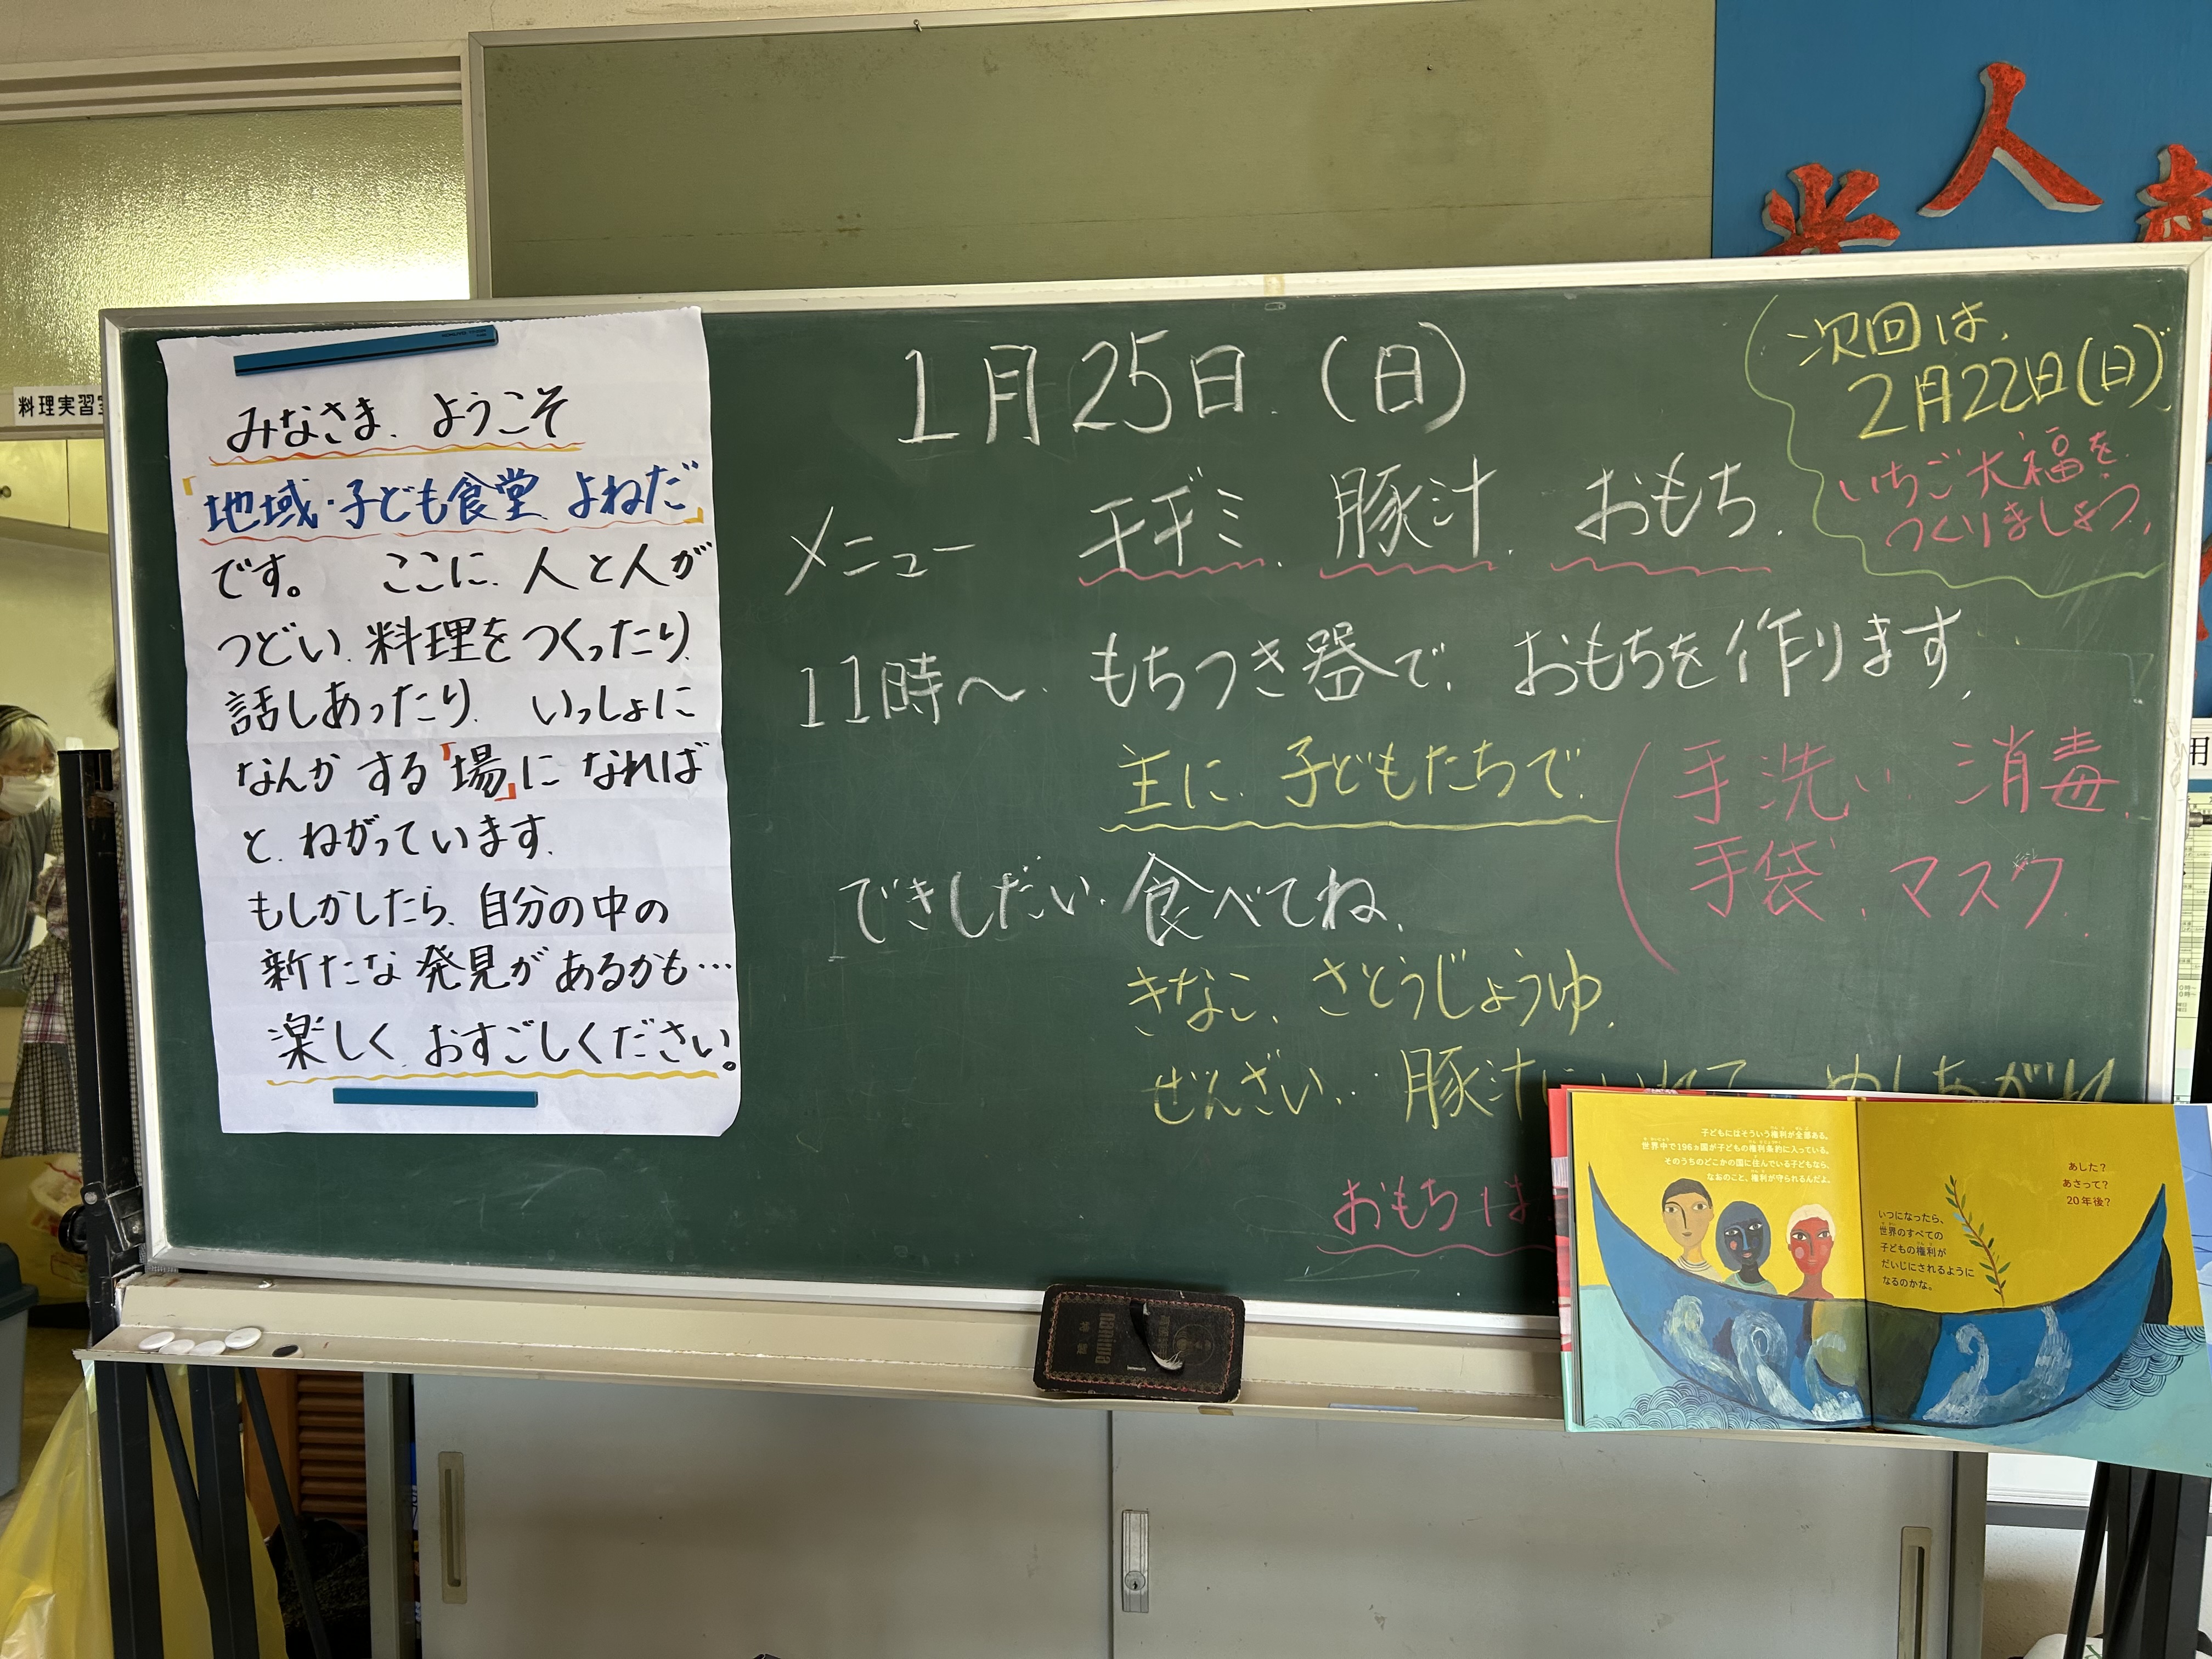 料理実習室
みなさま、ようこそ
「地域・子ども食堂 よねだ」
です。 ここに、人と人が
つどい、料理をつくったり、
話しあったり、 いっしょに
なんかする「場」になれば
と、ねがっています。
もしかしたら、自分の中の
新たな発見があるかも…
楽しく、おすごしください。
1月25日(日)
メニュー チヂミ、豚汁、おもち、
11時〜、もちつき器で、おもちを作ります。
主に、子どもたちで、
(手洗い、消毒、
手袋、マスク、
できしだい、食べてね、
きなこ、さとうじょうゆ、
ぜんざい、豚汁にいれて めしあがれ
おもちは
次回は、
2月22日(日)
いちご大福を
つくりましょう、
人
子どもにはそういう権利が全部ある。
世界中で196ヵ国が子どもの権利条約に入っている。
そのうちのどこかの国に住んでいる子どもなら、
なおのこと、権利が守られるんだよ。
あした？
あさって？
20年後？
いつになったら、
世界のすべての
子どもの権利が
だいじにされるように
なるのかな。
nariwa
用